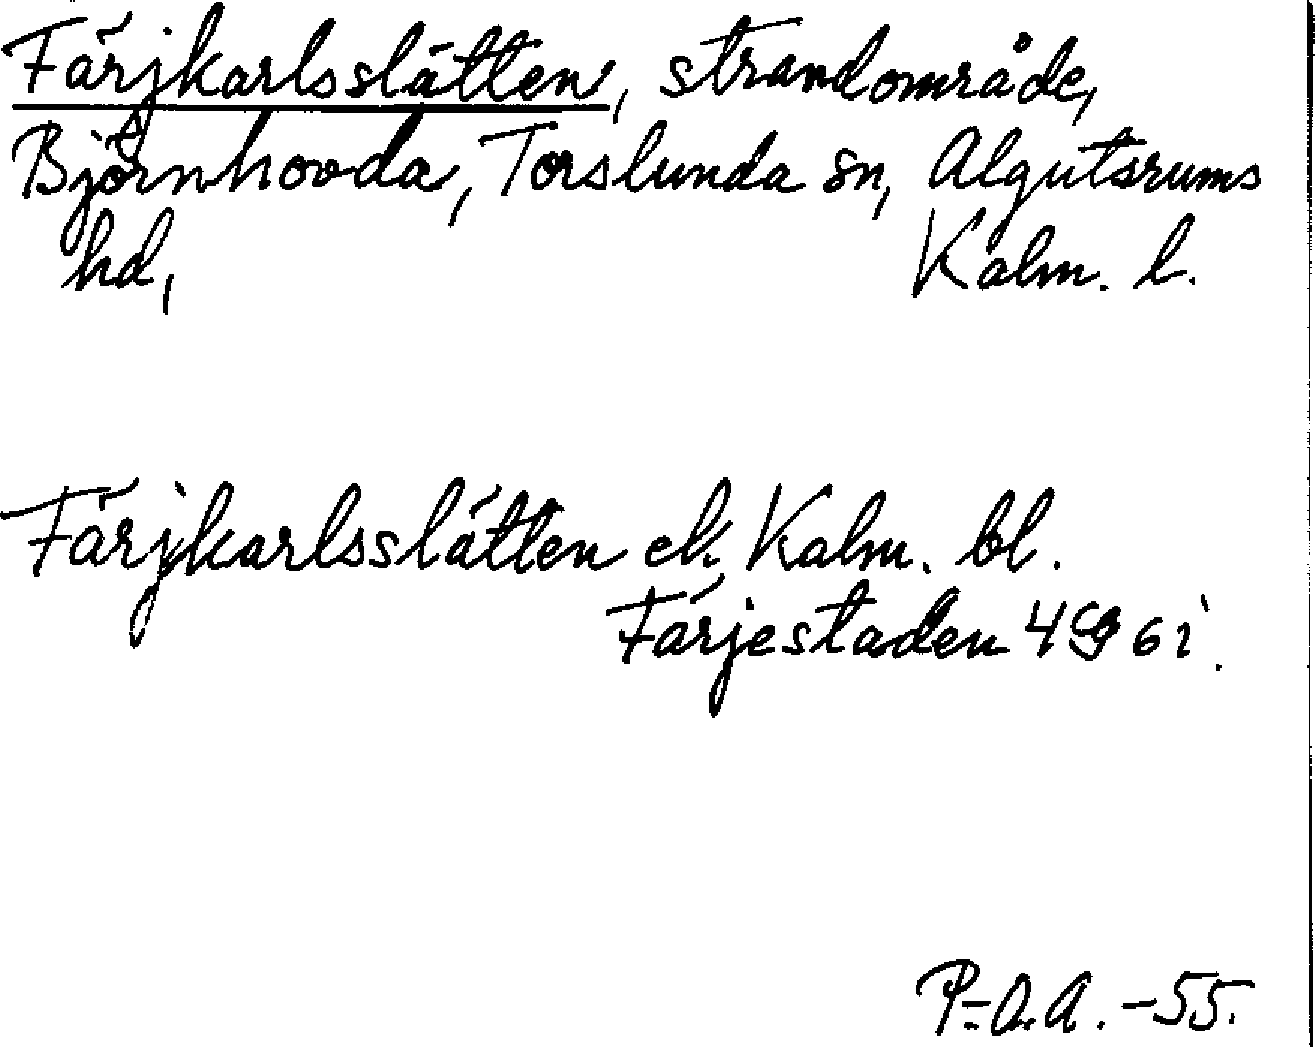 Färjkarlsslätten, strandområde,
Björnhovda, Torslunda sn, Algutsrums
hd, Kalm. l.
Färjkarlsslätten ek. Kalm. bl.
Färjestaden 4G 6i.
P-O.A. -55.